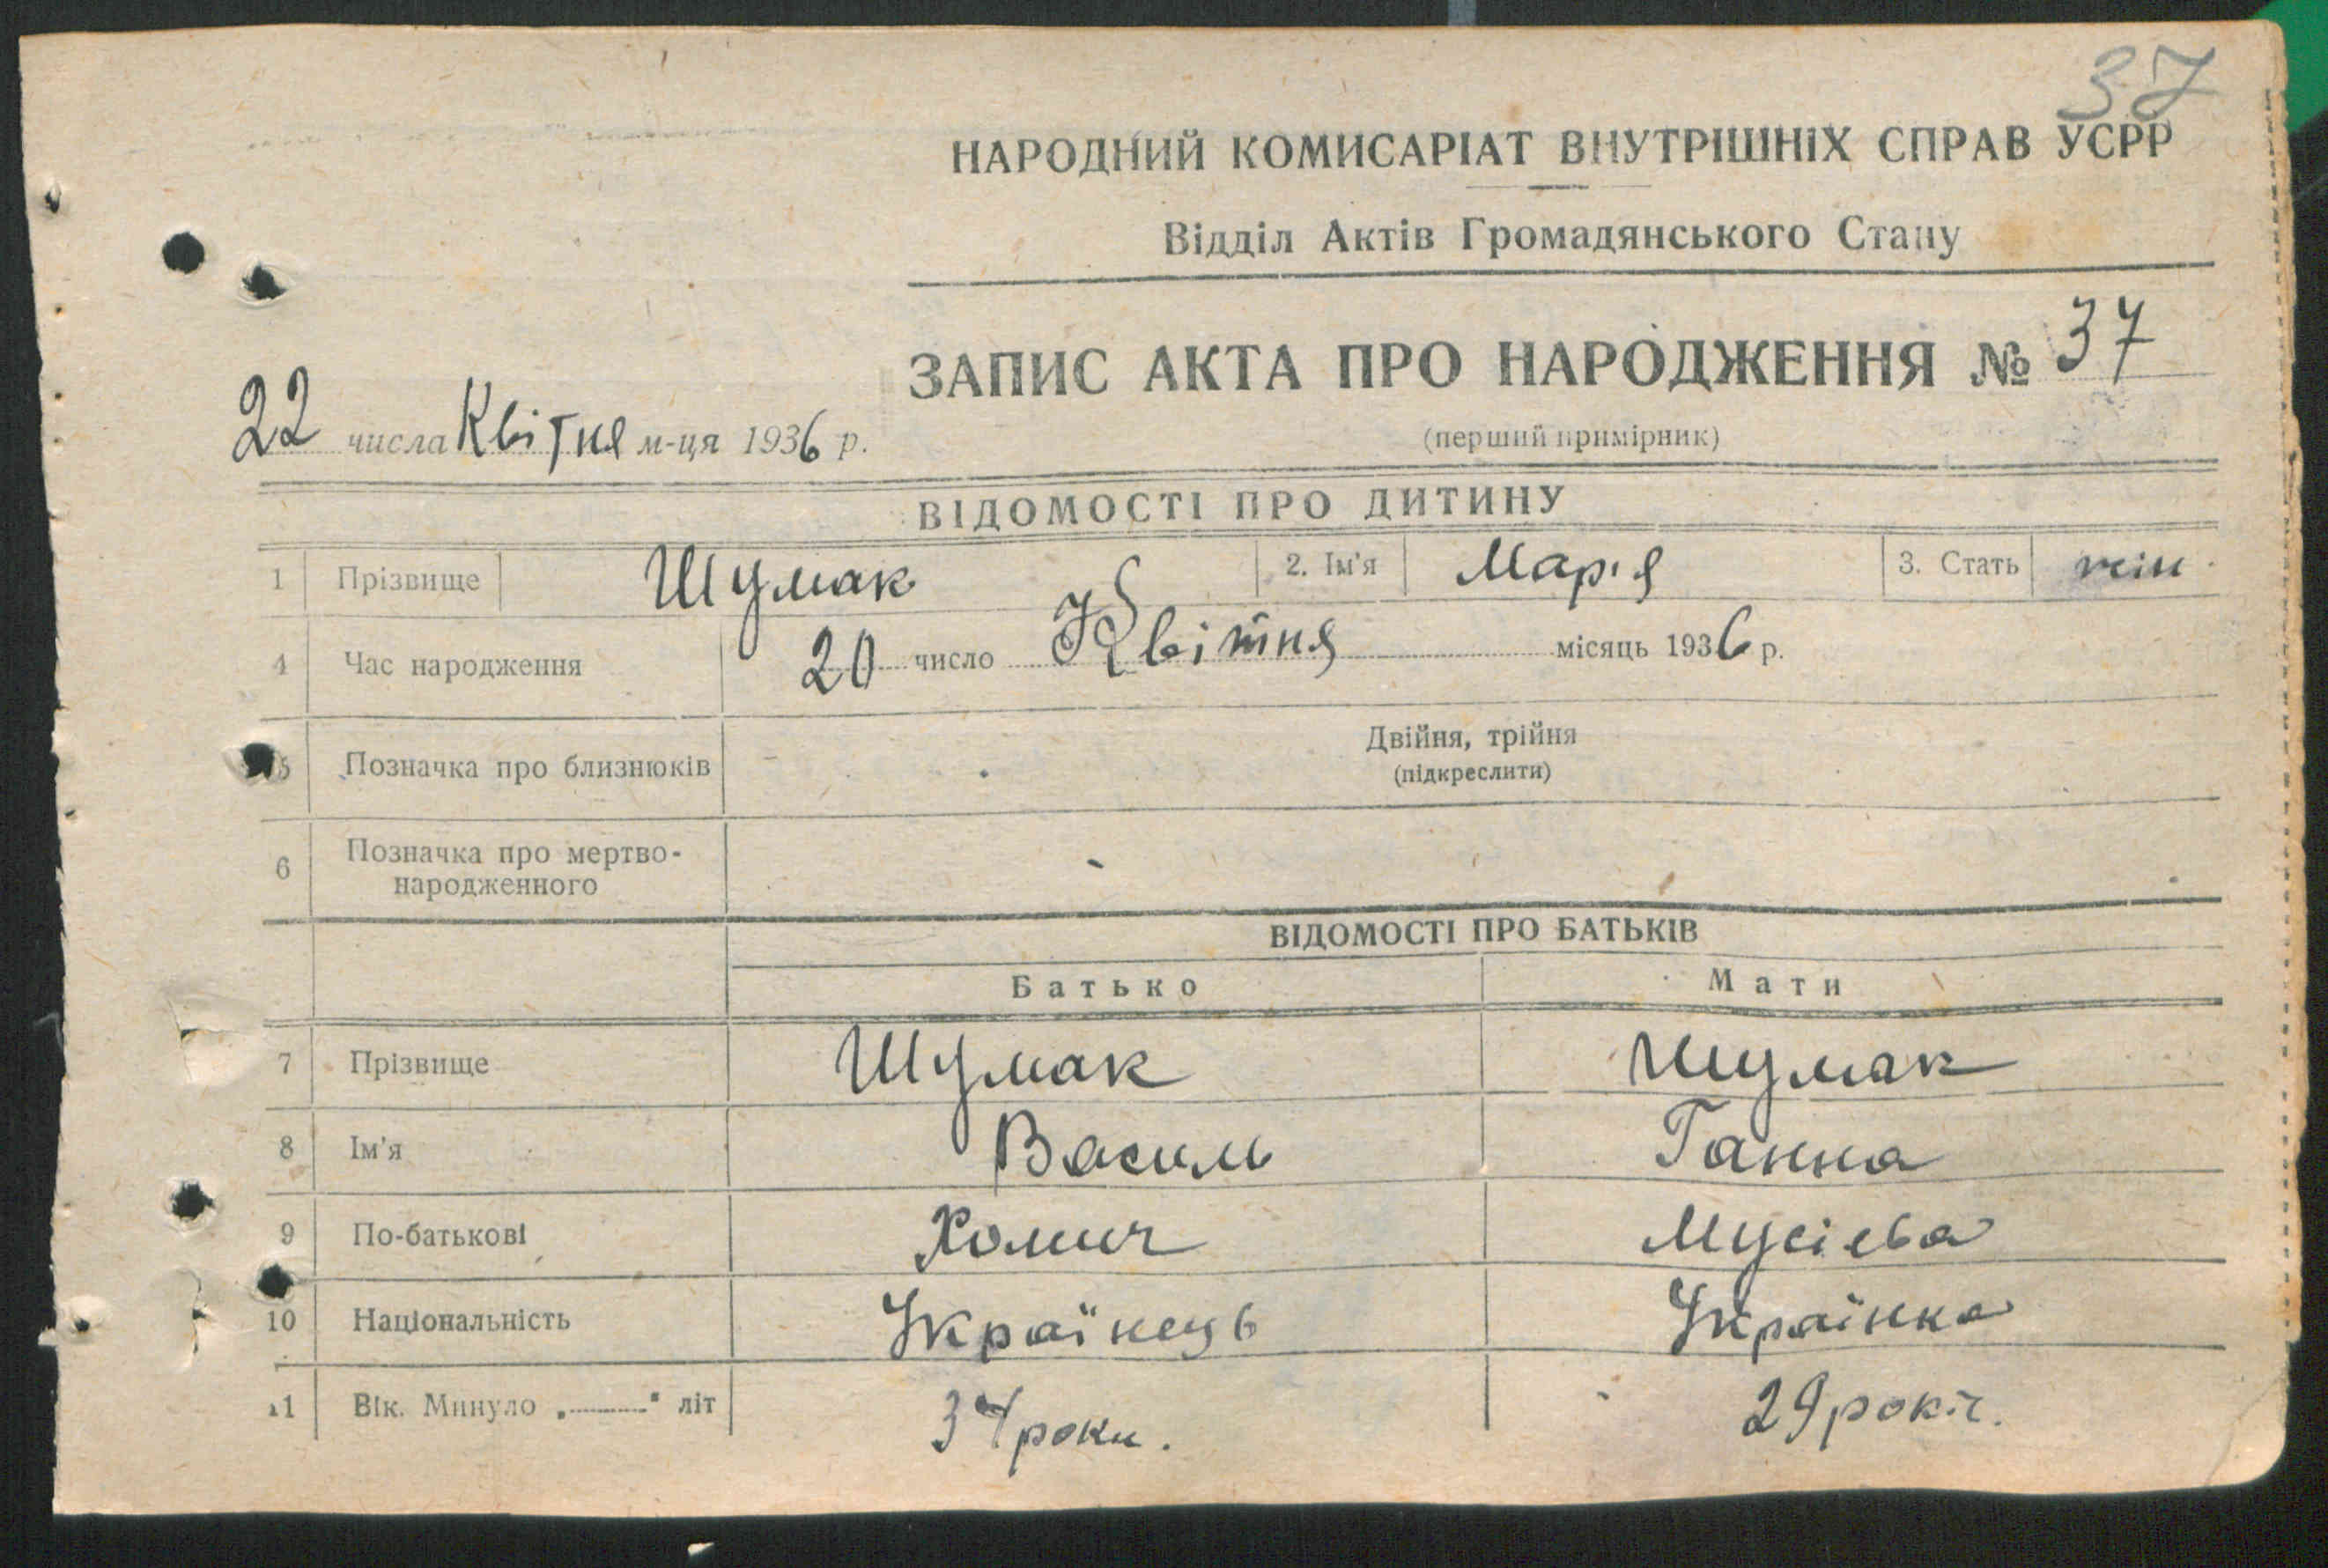 37
НАРОДНИЙ КОМИСАРІАТ ВНУТРІШНІХ СПРАВ УСРР
Відділ Актів Громадянського Стану
ЗАПИС АКТА ПРО НАРОДЖЕННЯ № 37
22 числа Квітня м-ця 1936 р.
(перший примірник)
ВІДОМОСТІ ПРО ДИТИНУ
1 Прізвище Шумак 2. Ім'я Марія 3. Стать жін
4 Час народження 20 число Квітня місяць 1936 р.
Двійня, трійня
5 Позначка про близнюків
(підкреслити)
6 Позначка про мертво-
народженного
ВІДОМОСТІ ПРО БАТЬКІВ
Батько Мати
7 Прізвище Шумак Шумак
8 Ім'я Василь Ганна
9 По-батькові Хомич Мусієва
10 Національність Українець Українка
11 Вік. Минуло „ " літ 34 роки. 29 років.